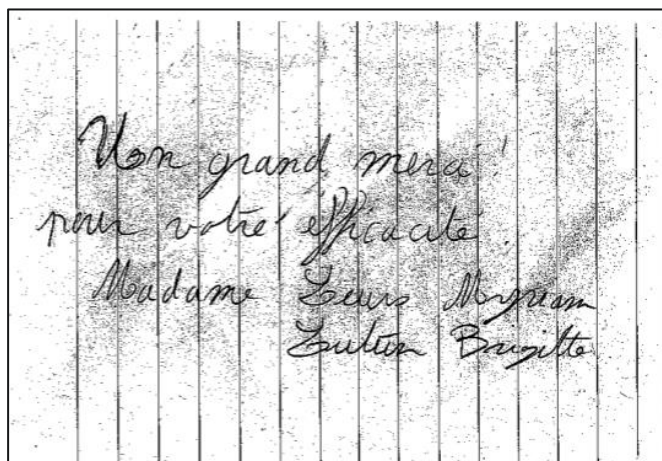 Un grand merci !
pour votre éfficacité.
Madame Leurs Myriam
Brigitte